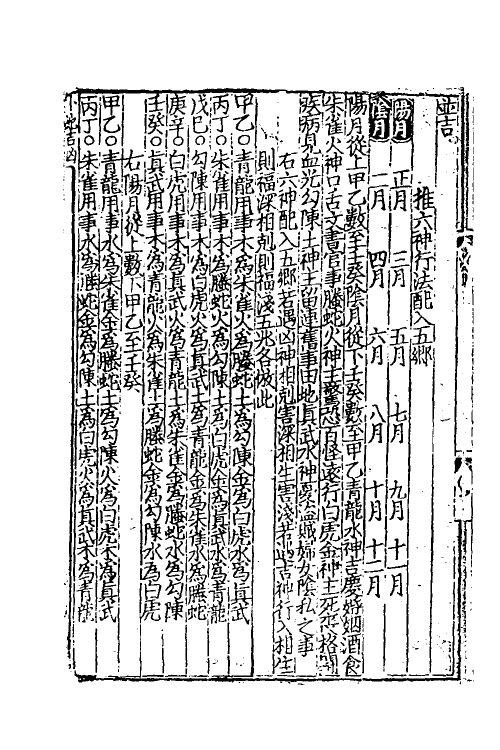 並吉
推六神行法配入五鄉
陽月 正月 三月 五月 七月 九月 十一月
陰月 二月 四月 六月 八月 十月 十二月
陽月從上甲乙數至壬癸陰月從下壬癸數至甲乙青龍水神吉慶婚姻酒食
朱雀火神口舌文書官事螣蛇火神主驚恐百怪凌行白虎金神主死死格鬪
疾病見血光勾陳土神主留連舊事田地真武水神憂盜賊婦女陰私之事
右六神配入五鄉若遇凶神相剋害深相生害淺若遇吉神行入相生
則福深相剋則福淺五兆各倣此
甲乙○青龍用事木為朱雀火為螣蛇土為勾陳金為白虎水為真武
丙丁○朱雀用事木為螣蛇火為勾陳土為白虎金為真武水為青龍
戊己○勾陳用事木為白虎火為真武土為青龍金為朱雀水為螣蛇
庚辛○白虎用事木為真武火為青龍土為朱雀金為螣蛇水為勾陳
壬癸○真武用事木為青龍火為朱雀土為螣蛇金為勾陳水為白虎
右陽月從上數下甲乙至壬癸
甲乙○青龍用事水為朱雀金為螣蛇土為勾陳火為白虎木為真武
丙丁○朱雀用事水為螣蛇金為勾陳土為白虎火為真武木為青龍